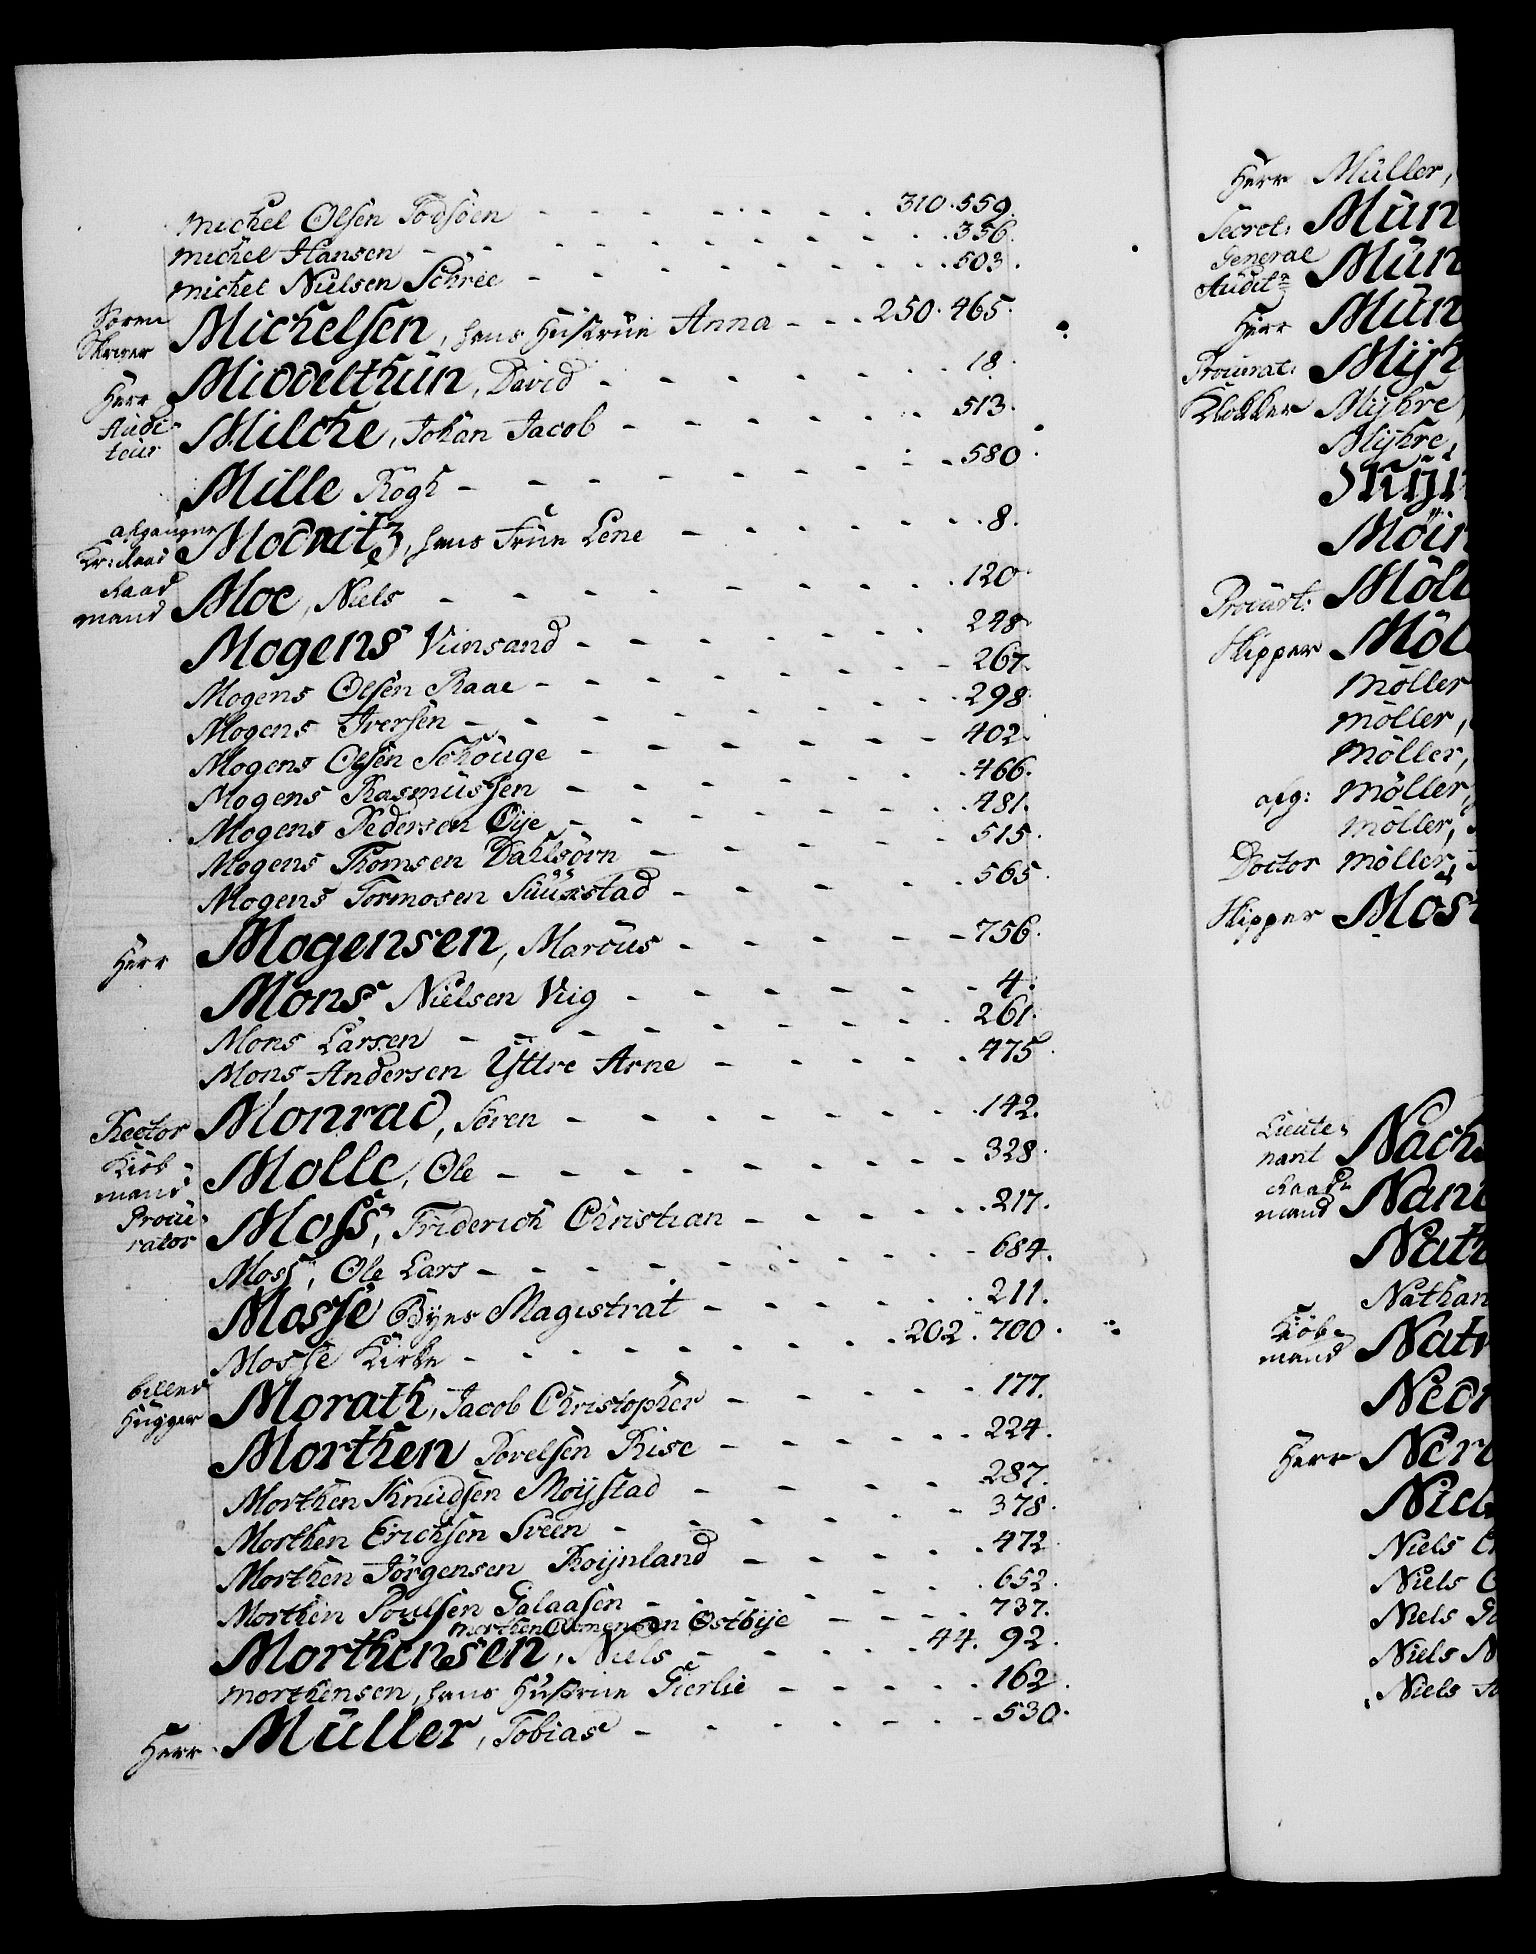 Michel Olsen Todsöen - - - - - - 310. 559.
Michel Hansen - - - - - - - 356.
Michel Nielsen Schree - - - - - - 503.
Sören Skriver Michelsen, hans Hüstrüe Anna - - 250. 465.
Herr Middelthün, David - - - - - 18.
Audi-teur Milche, Johan Jacob - - - - - 513.
Mille Rögh - - - - - - 580.
afgangne Kr: Raad Mocritz, hans Frue Lene - - - - - 8.
Raad mand Moe, Niels - - - - - - - 120.
Mogens Viinsand - - - - - - 248.
Mogens Olsen Raae - - - - - - 267.
Mogens Iversen - - - - - - - 298.
Mogens Olsen Schouge - - - - - - 402.
Mogens Rasmüssen - - - - - - 466.
Mogens Pedersen Öÿe - - - - - - 481.
Mogens Thomsen Dahlsörn - - - - - 515.
Mogens Tormosen Süüxstad - - - - - 565.
Herr Mogensen, Marcus - - - - - 756.
Mons Nielsen Viig - - - - - - 4.
Mons Larsen - - - - - - - 261.
Mons Andersen Yttre Arne - - - - - 475.
Rector Monrad, Sören - - - - - - 142.
Kiöb-mand Molle, Ole - - - - - - - 328.
Procu-rator Moss, Friderich Christian - - - - 217.
Moss, Ole Lars - - - - - - - 684.
Mosse Byes Magistrat - - - - - 211.
Mosse Kirke - - - - - - 202. 700.
billed Hugger Morath, Jacob Christopher - - - - 177.
Morthen Povelsen Riise - - - - - 224.
Morthen Knudsen Moÿstad - - - - - 287.
Morthen Erichsen Sveen - - - - - - 378.
Morthen Jörgensen Roÿnland - - - - 472.
Morthen Poulsen Galaasen - - - - - 652.
Morthen Clemensen Östbÿe - - - 737.
Morthensen, Niels - - - - 44. 92.
Morthensen, hans Hustrue Gierlie - - - - 162.
Herr Müller, Tobias - - - - - - 530.
Herr Müller,
Secret: Mün
General Audit: Mün
Herr Mün
Procurat: Mÿh
Klokker Mÿhre,
Mÿhre,
Möin
Procurt: Möll
Skipper Möl
Möller
Möller,
Möller,
afg: Möller,
Möller,
Doctor Möller,
Skipper Mös
Lieute-nant Nach
Raad-mand Nan
Nath
Nathan
Kiöb-mand Nat
Ned
Herr Ner
Niel
Niels
Niels
Niels
Niels N
Niels